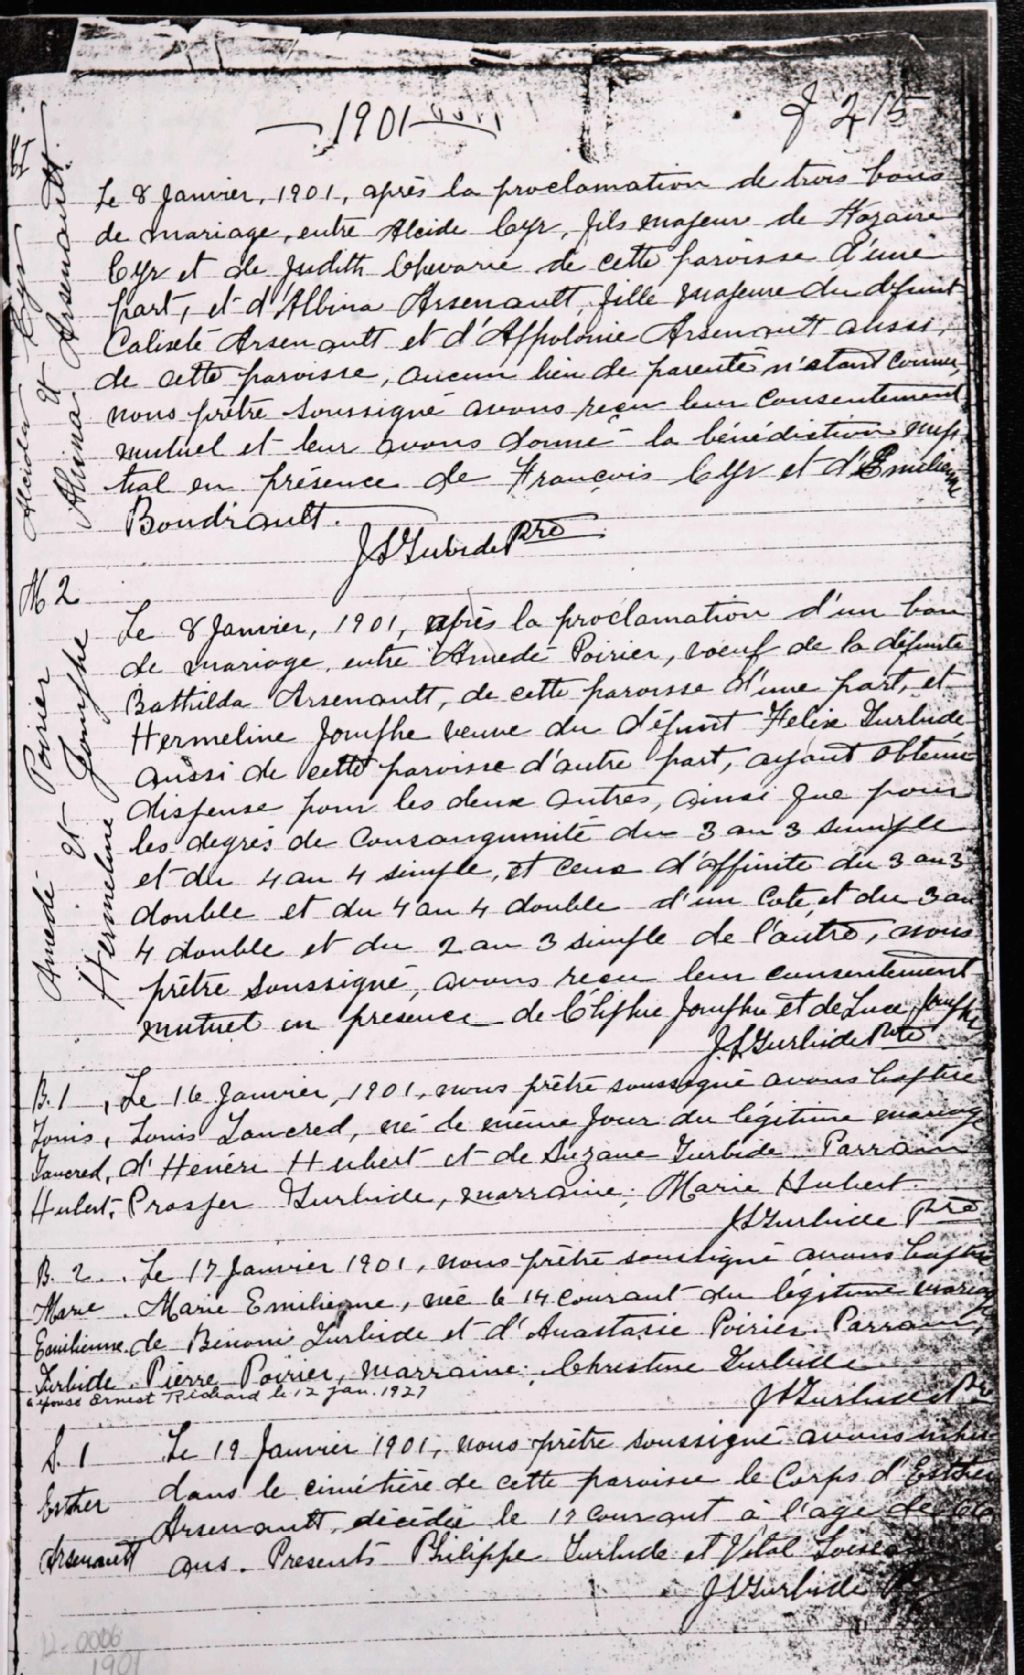 1901
f 215
M 1
Alcide Cyr
et
Albina Arsenault.
Le 8 Janvier, 1901, après la proclamation de trois bans
de mariage, entre Alcide Cyr, fils majeur de Nazaire
Cyr et de Judith Chevarie de cette paroisse d'une
part, et d'Albina Arsenault, fille majeure du défunt
Calixte Arsenault et d'Appolonie Arsenault aussi,
de cette paroisse, aucun lien de parenté n'étant connu,
nous prêtre soussigné avons reçu leur consentement
mutuel et leur avons donné la bénédiction nup-
tial en présence de François Cyr et d'Emilienne
Boudrault.
JSTurbide Ptre
M 2
Amedé et Poirier
Hermeline Jomphe
Le 8 Janvier, 1901, après la proclamation d'un ban
de mariage, entre Amedé Poirier, voeuf de la défunte
Bathilda Arsenault, de cette paroisse d'une part, et
Hermeline Jomphe veuve du défunt Felix Turbide
aussi de cette paroisse d'autre part, ayant obtenu
dispense pour les deux autres, ainsi que pour
les degrés de consanguinité du 3 au 3 simple
et du 4 au 4 simple, et ceux d'affinité du 3 au 3
double et du 4 au 4 double d'un Coté, et du 3 au
4 double et du 2 au 3 simple de l'autre, nous
prêtre soussigné, avons reçu leur consentement
mutuel en présence de Jomphe et de Luce Jomphe
JSTurbide Ptre
B. 1 Le 16 Janvier, 1901, nous prêtre soussigné avons baptisé
Louis, Louis Tancred, né le même jour du légitime mariage
Tancred, d'Heneri Hubert et de Suzane Turbide. Parrain
Hubert, Prosper Turbide, marraine; Marie Hubert.
JSTurbide Ptre
B. 2. Le 17 Janvier 1901, nous prêtre soussigné avons baptisé
Marie. Marie Emilienne, née le 14 courant du légitime mariage
Emilienne. de Benoni Turbide et d'Anastasie Poirier. Parrain,
Turbide. Pierre Poirier, marraine; Christine Turbide
a épousé Ernest Richard le 12 jan. 1927
JSTurbide Ptre
S. 1 Le 19 Janvier 1901, nous prêtre soussigné avons inhumé
Esther dans le cimétière de cette paroisse le Corps d'Esther
Arsenault Arsenault, décédée le 17 courant à l'age de
ans. Presents Philippe Turbide et Vital
JSTurbide
0006
1901